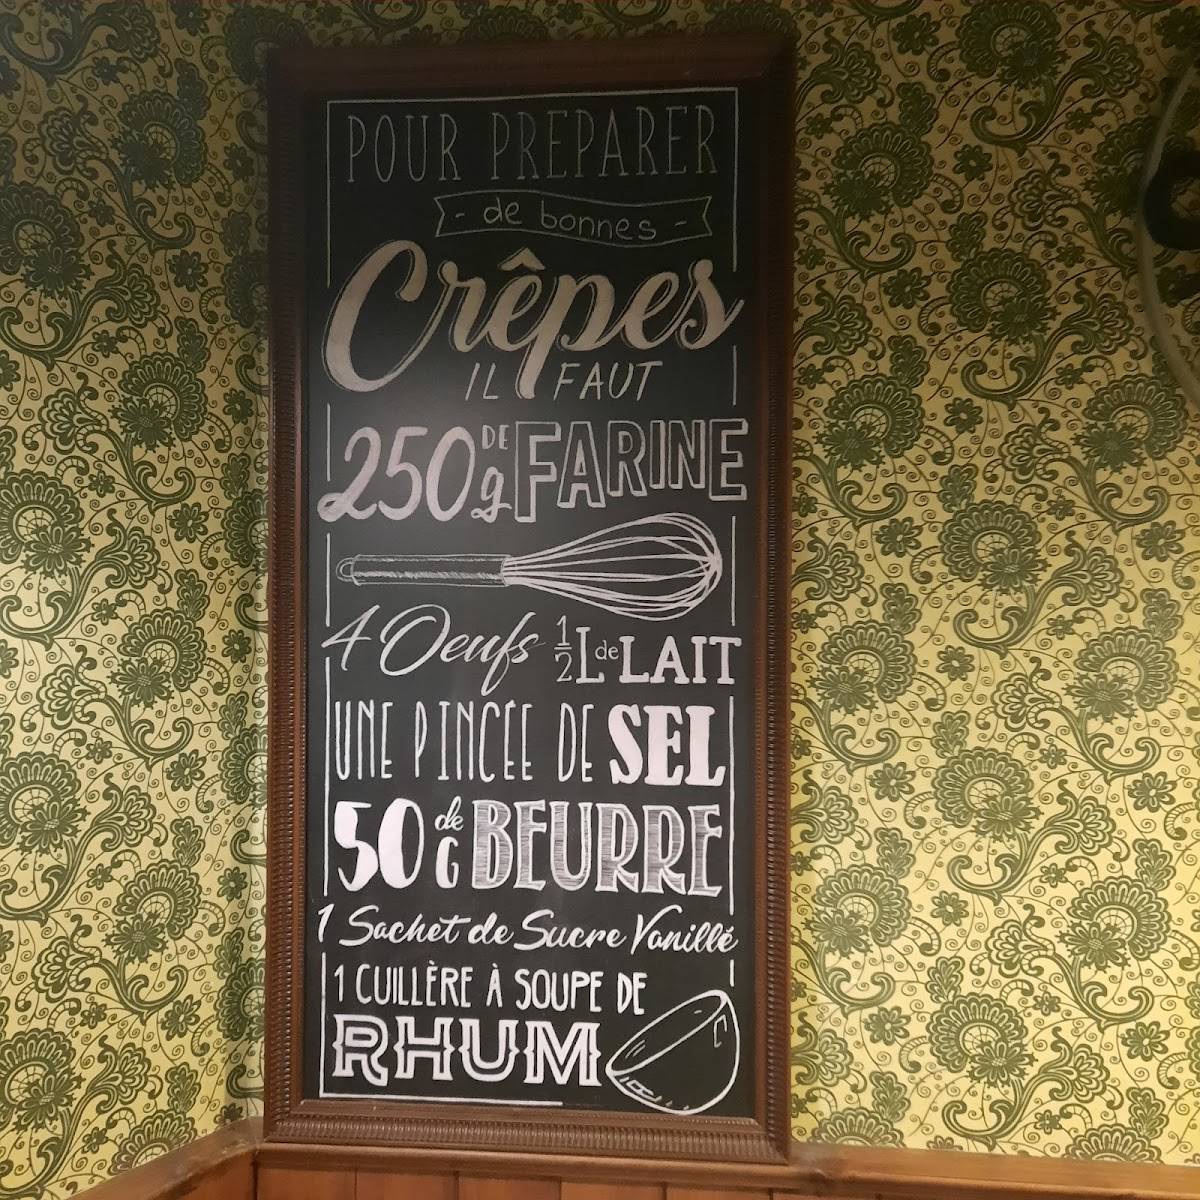 POUR PREPARER
- de bonnes -
Crêpes
IL FAUT
250 g DE FARINE
4 Oeufs 1/2 L de LAIT
UNE PINCÉE DE SEL
50 G de BEURRE
1 Sachet de Sucre Vanillé
1 CUILLÈRE À SOUPE DE
RHUM